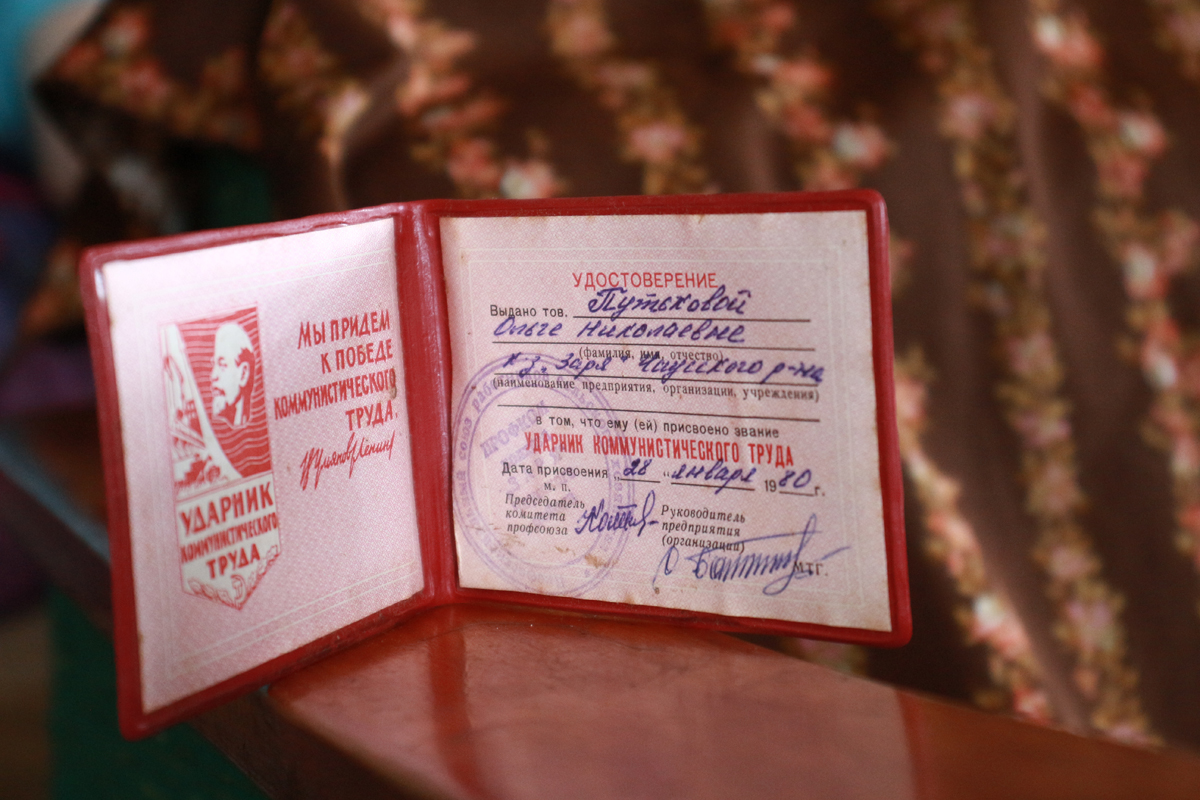 Мы придем
к победе
коммунистического
труда.
УДАРНИК
КОММУНИСТИЧЕСКОГО
ТРУДА
УДОСТОВЕРЕНИЕ
Выдано тов. Путьковой
Ольге Николаевне
(фамилия, имя, отчество)
к-з „Заря" Чаусского р-на
(наименование предприятия, организации, учреждения)
в том, что ему (ей) присвоено звание
УДАРНИК КОММУНИСТИЧЕСКОГО ТРУДА
Дата присвоения „28" января 1980 г.
м. п.
Председатель
комитета
профсоюза
Руководитель
предприятия
(организации)
МТГ.
ПРОФКОМ